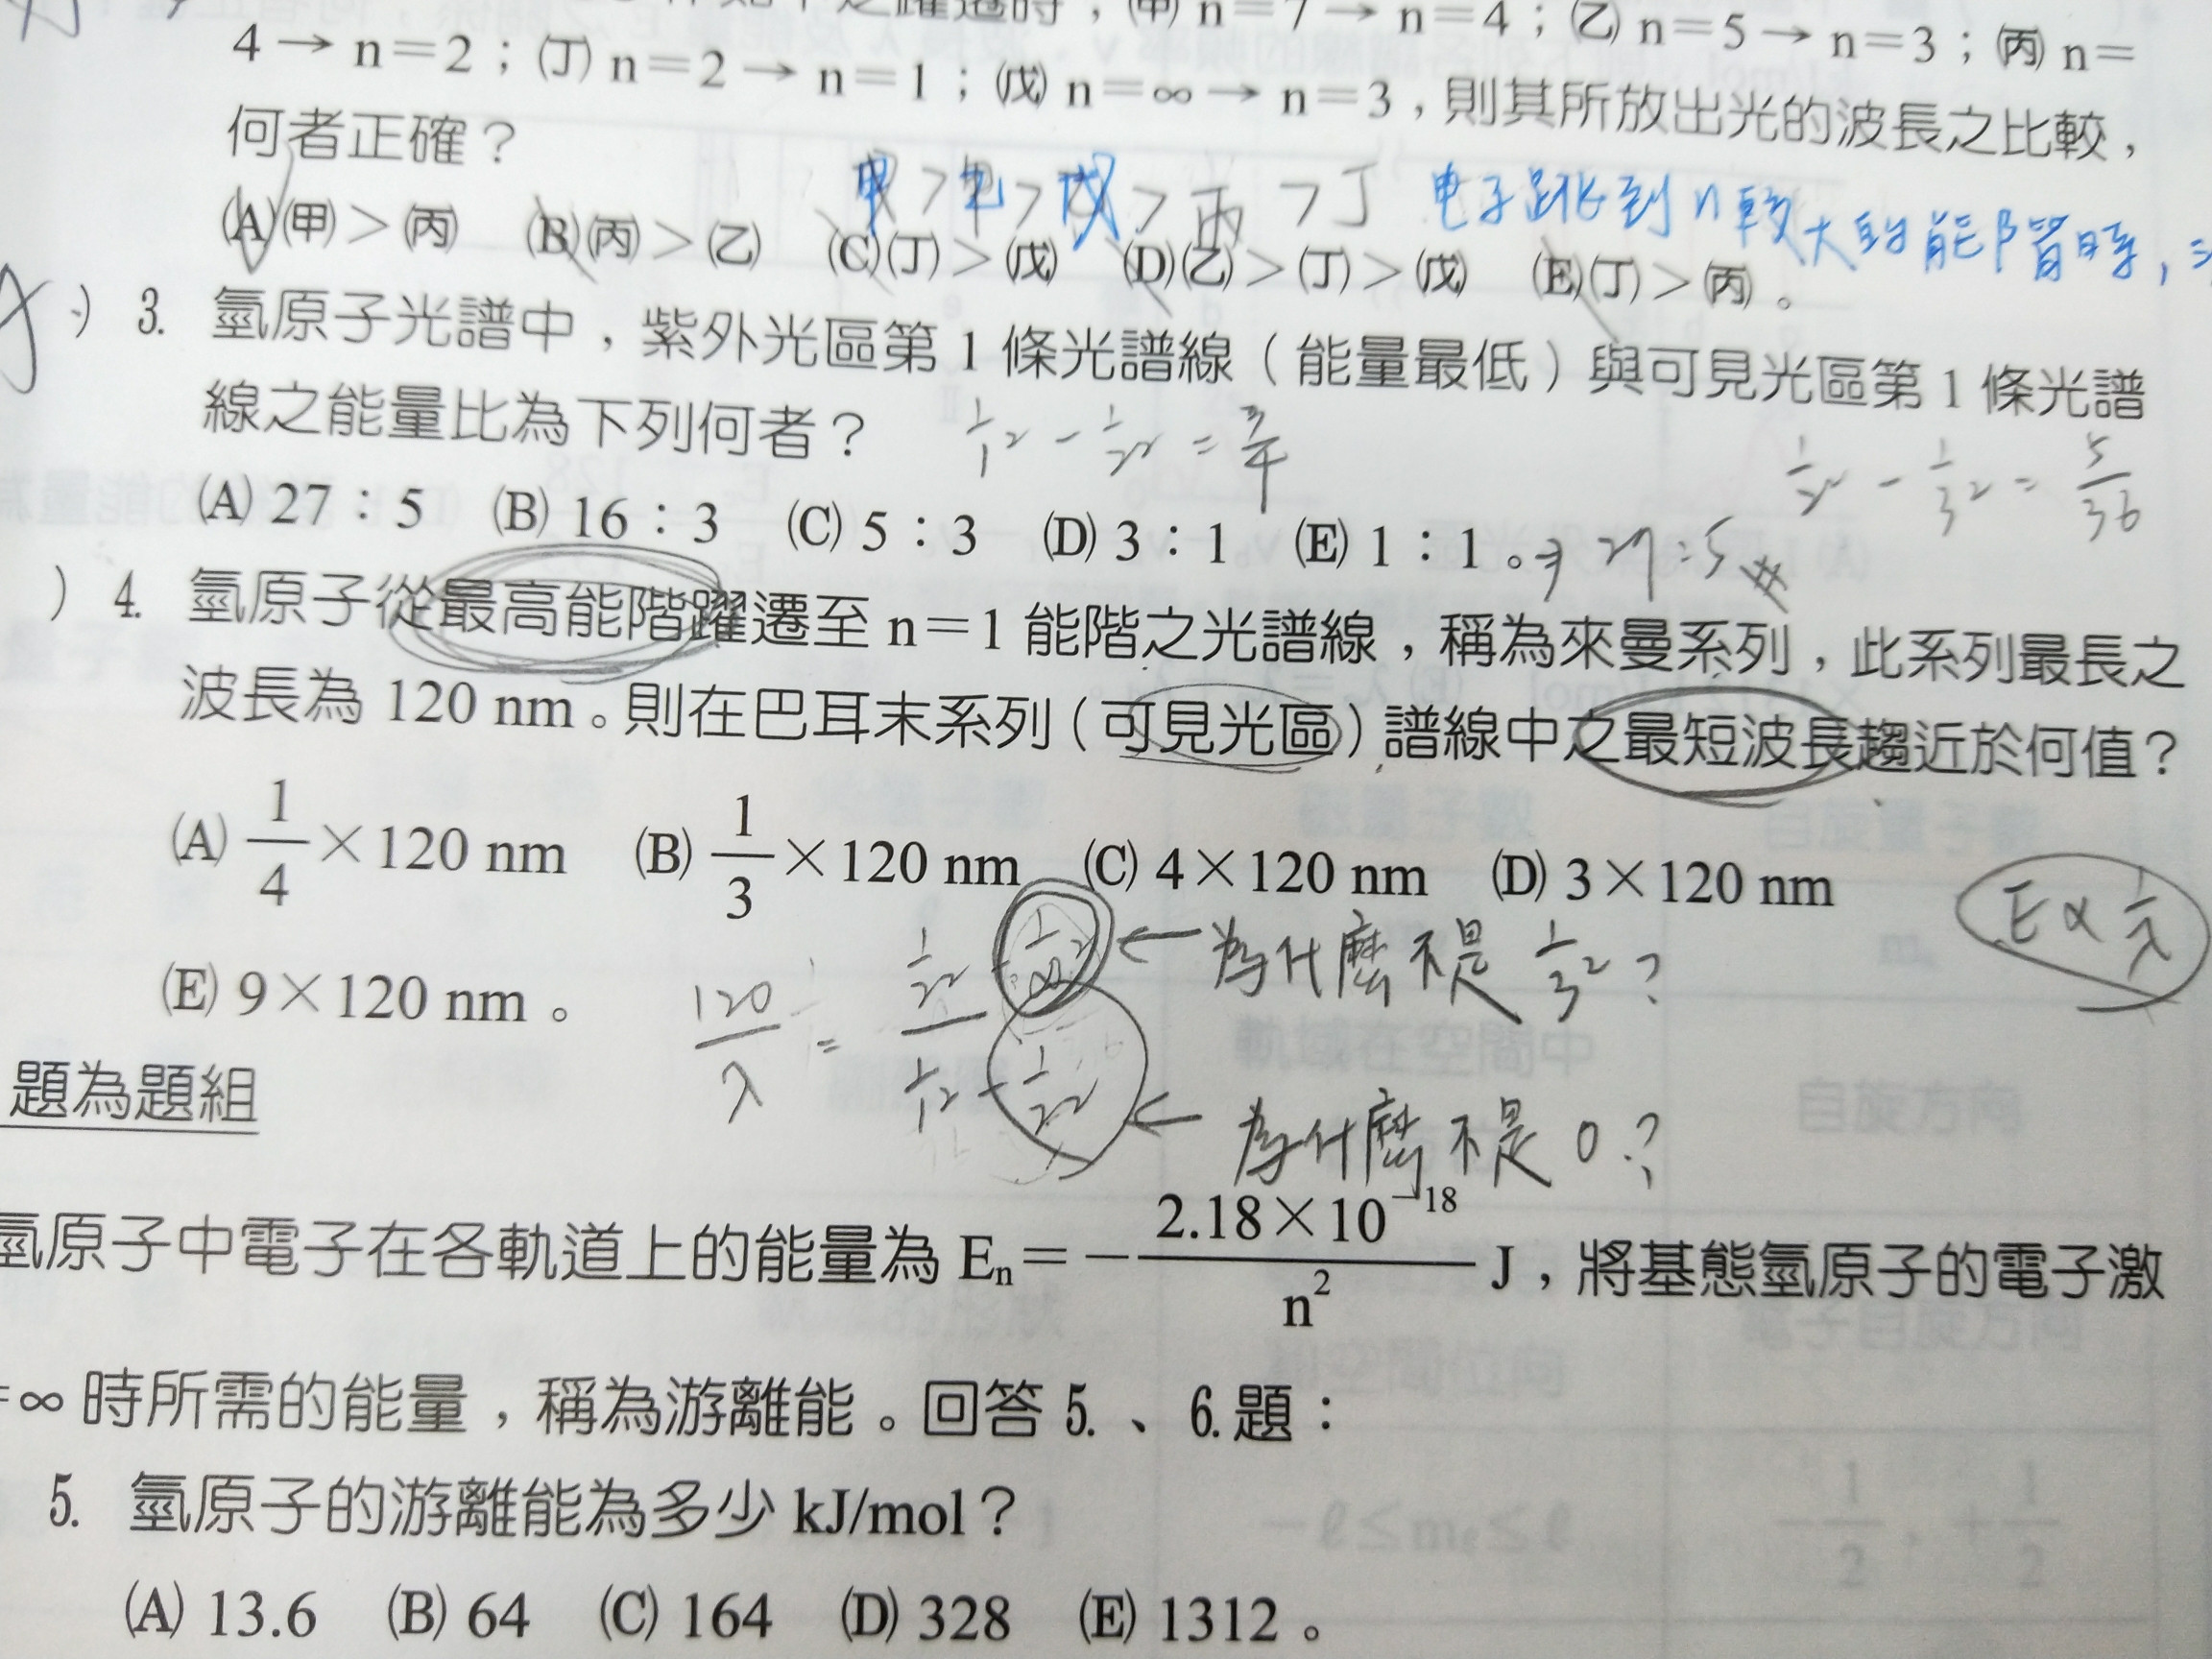 n=7→n=4；(乙)n=5→n=3；(丙)n=
4→n=2；(丁)n=2→n=1；(戊)n=∞→n=3，則其所放出光的波長之比較，
何者正確？
甲>乙>戊>丙>丁 电子跳到n較大的能階時，
(A)(甲)>(丙) (B)(丙)>(乙) (C)(丁)>(戊) (D)(乙)>(丁)>(戊) (E)(丁)>(丙)。
3. 氫原子光譜中，紫外光區第1條光譜線（能量最低）與可見光區第1條光譜
線之能量比為下列何者？ 1/1² - 1/2² = 3/4 1/2² - 1/3² = 5/36
(A) 27：5 (B) 16：3 (C) 5：3 (D) 3：1 (E) 1：1。⇒ 27:5 #
) 4. 氫原子從最高能階躍遷至 n=1 能階之光譜線，稱為來曼系列，此系列最長之
波長為 120 nm。則在巴耳末系列（可見光區）譜線中之最短波長趨近於何值？
(A) 1/4×120 nm (B) 1/3×120 nm (C) 4×120 nm (D) 3×120 nm
E∝1/λ
(E) 9×120 nm。
120/λ = (1/2² - 1/∞²)/(1/1² - 1/2²)
←為什麼不是 1/3²？
←為什麼不是 0？
題為題組
氫原子中電子在各軌道上的能量為 Eₙ=－2.18×10⁻¹⁸/n² J，將基態氫原子的電子激
=∞時所需的能量，稱為游離能。回答 5.、6.題：
5. 氫原子的游離能為多少 kJ/mol？
(A) 13.6 (B) 64 (C) 164 (D) 328 (E) 1312。